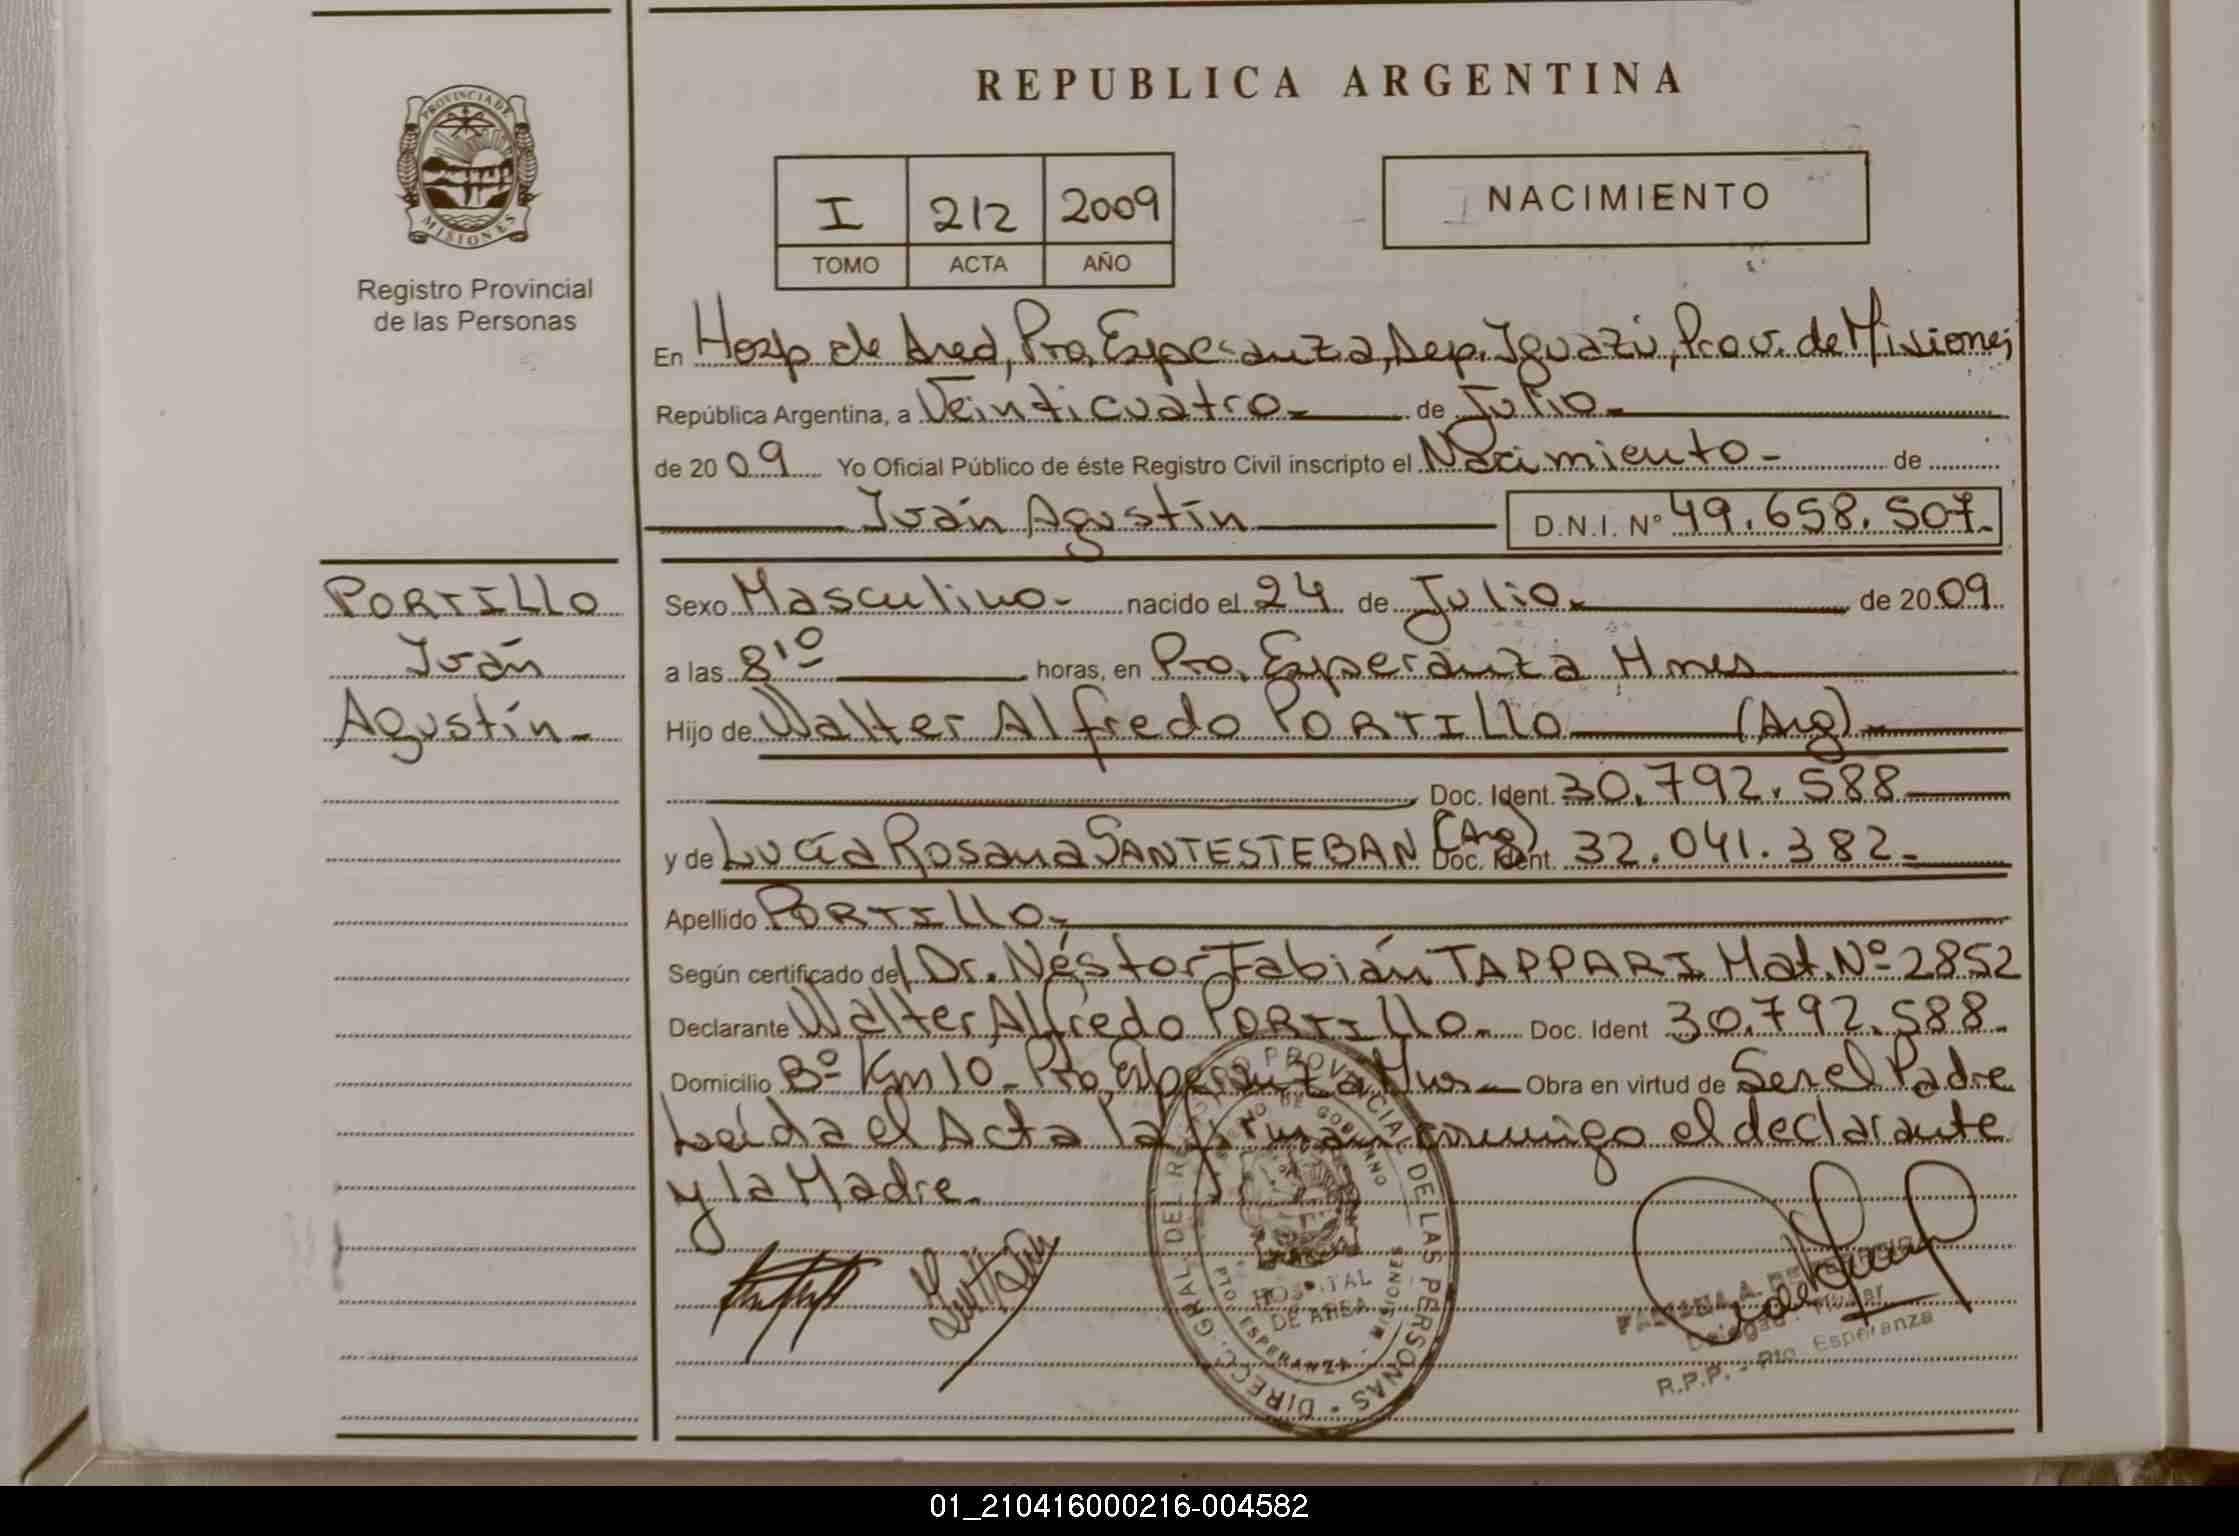 REPUBLICA ARGENTINA
PROVINCIA DE
MISIONES
Registro Provincial
de las Personas
I 212 2009
TOMO ACTA AÑO
NACIMIENTO
En Hosp de Area, Pto. Esperanza, Dep. Iguazú, Prov. de Misiones
República Argentina, a Veinticuatro de Julio
de 2009 Yo Oficial Público de éste Registro Civil inscripto el Nacimiento de
Iván Agustín D.N.I. Nº 49.658.507
PORTILLO
Iván
Agustín
Sexo Masculino nacido el 24 de Julio de 2009
a las 8¹⁰ horas, en Pto. Esperanza Mnes
Hijo de Walter Alfredo PORTILLO (Arg)
Doc. Ident. 30.792.588
y de Lucía Rosana SANTESTEBAN (Arg) Doc. Ident. 32.041.382
Apellido PORTILLO
Según certificado del Dr. Néstor Fabián TAPPARI Mat. Nº 2852
Declarante Walter Alfredo PORTILLO Doc. Ident 30.792.588
Domicilio Bº Km 10 - Pto. Esperanza Mns Obra en virtud de Ser el Padre
Leída el Acta la firman conmigo el declarante
y la Madre.
DIREC. GRAL. DEL REGISTRO PROVINCIAL DE LAS PERSONAS
DE GOBIERNO
HOSPITAL
DE AREA
PTO. ESPERANZA - MISIONES
A.
Titular
R.P.P. - Pto. Esperanza
01_210416000216-004582